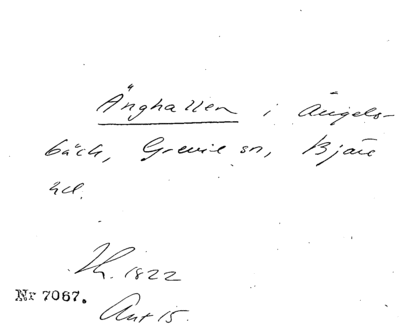 Änghallen i Ängels-
bäck, Grevie sn, Bjäre
hd.
Th. 1822
Nr 7067.
Ant 15.